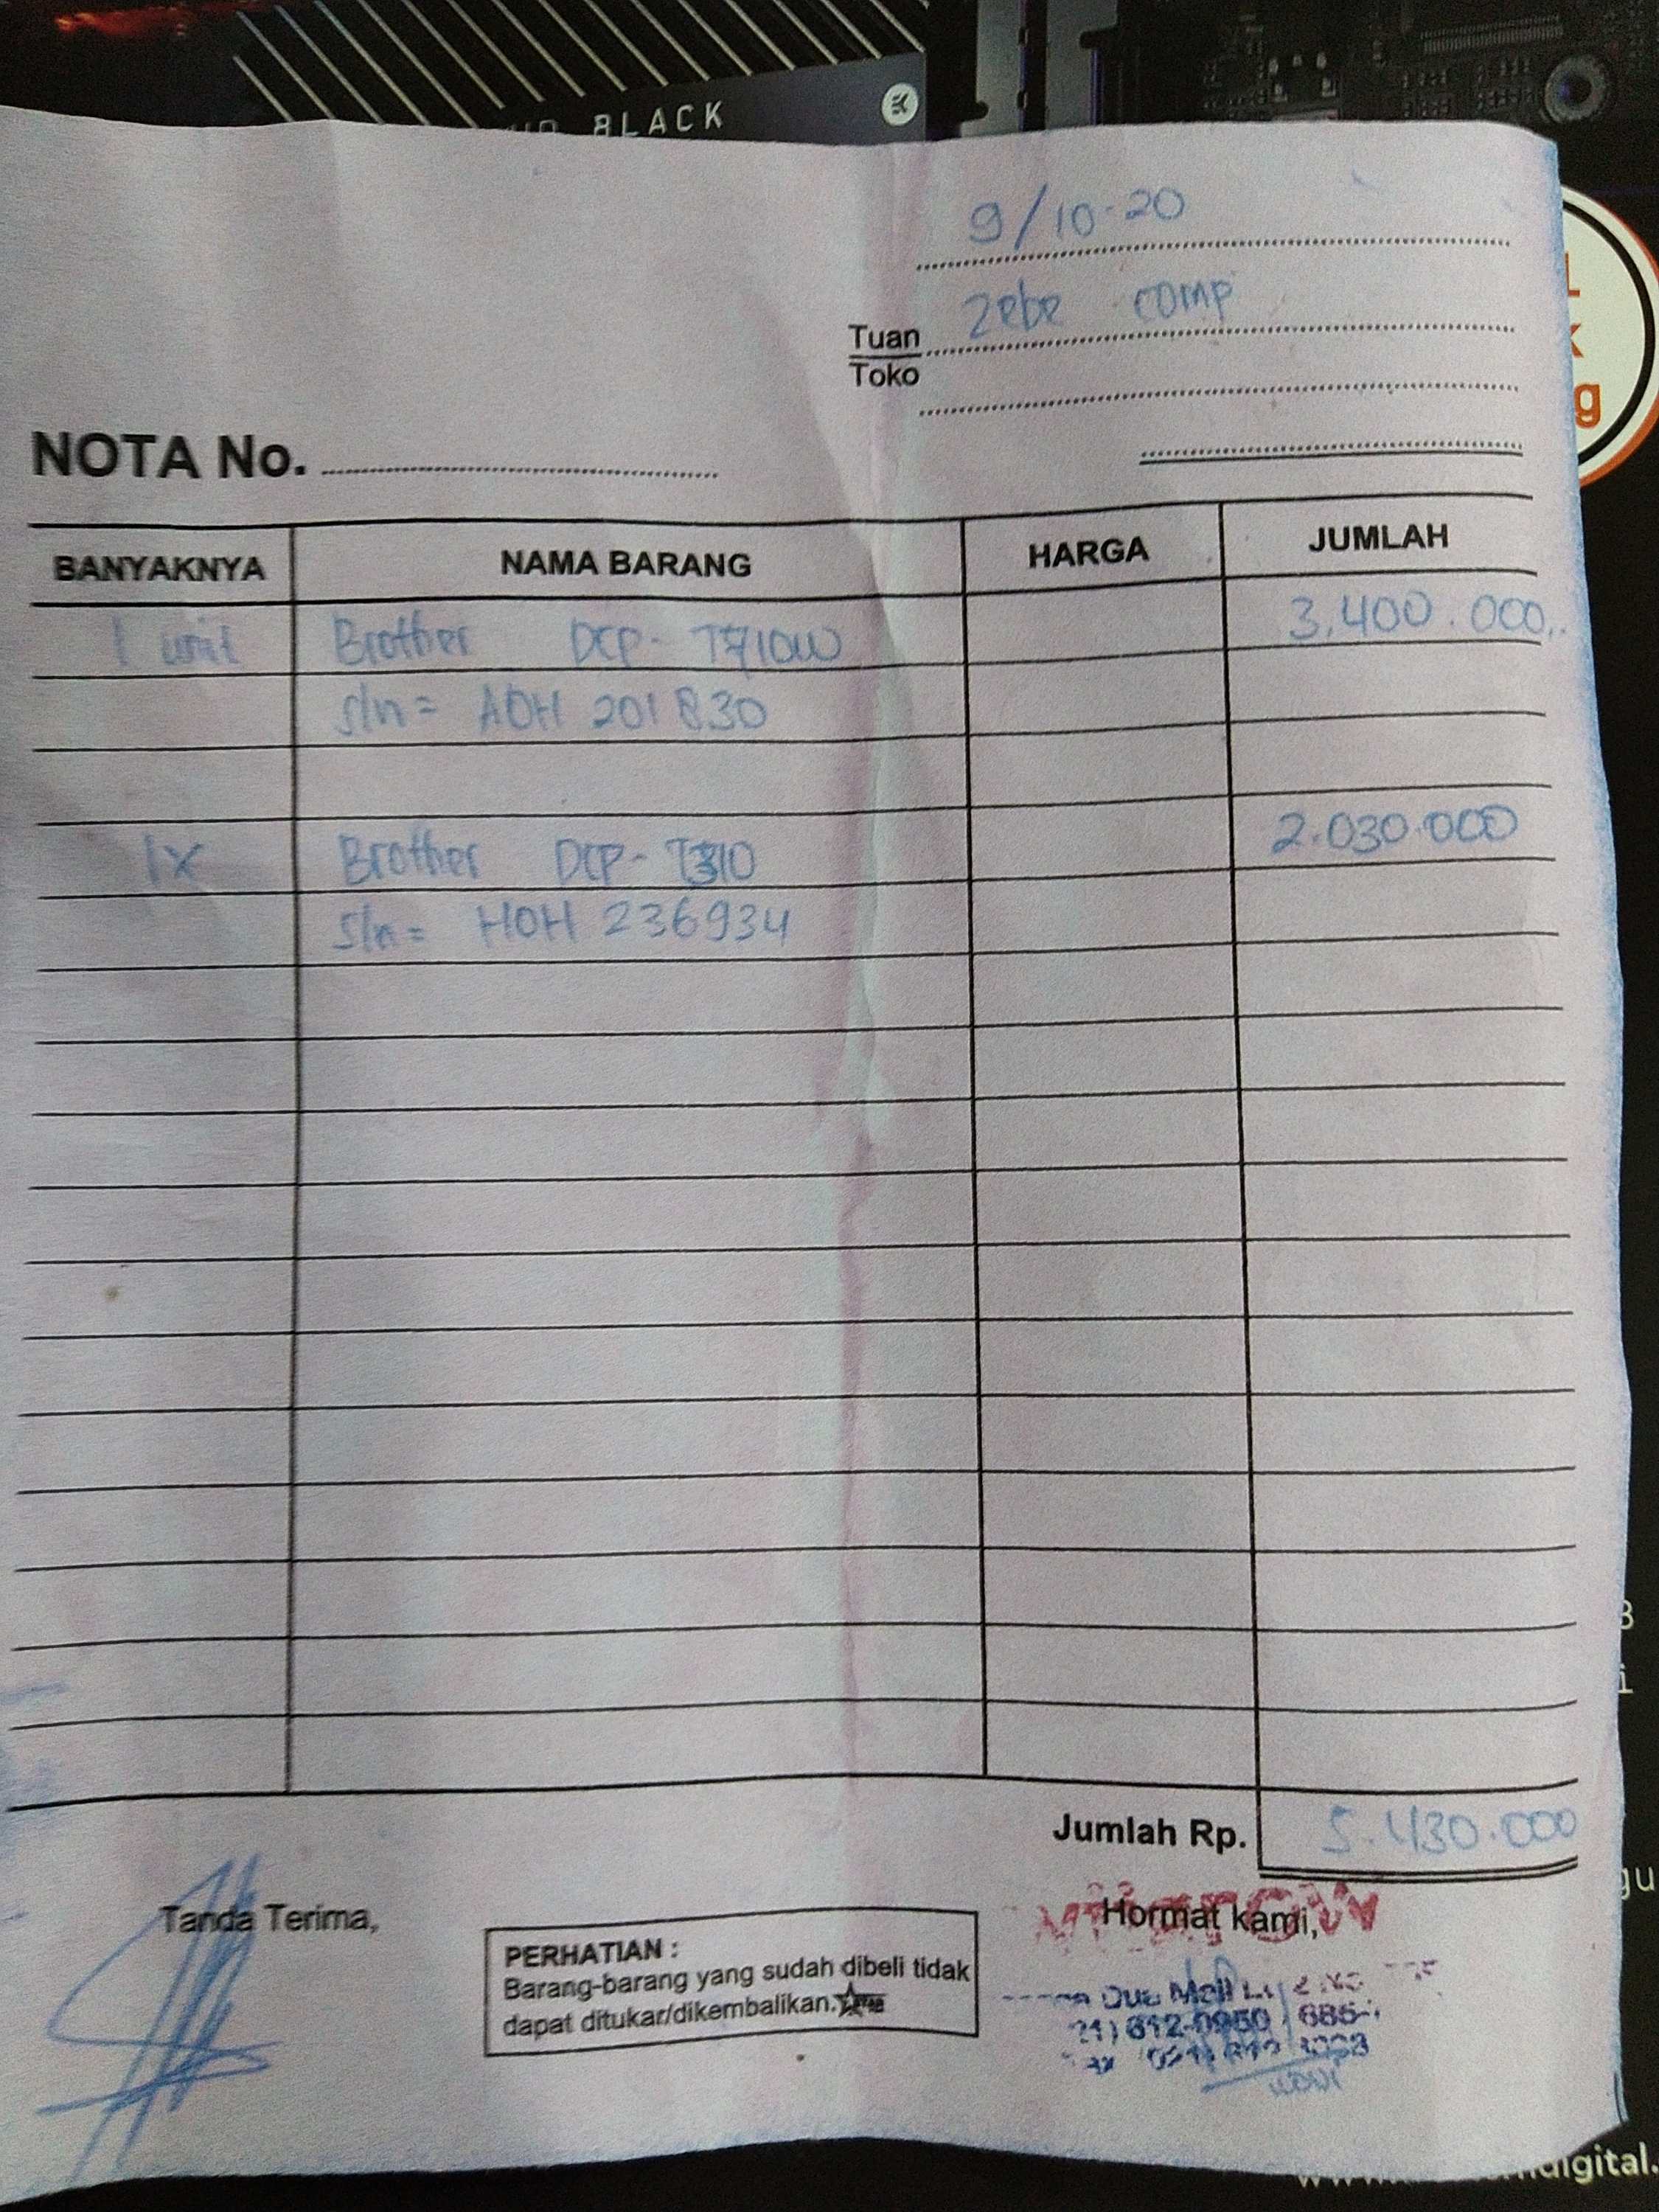 BLACK
9/10-20
Tuan Zebe comp
Toko
NOTA No.
BANYAKNYA NAMA BARANG HARGA JUMLAH
1 unit Brother DCP-T710W 3.400.000,.
s/n = A0H 201830
1x Brother DCP-T310 2.030.000
s/n = H0H 236934
Jumlah Rp. 5.430.000
Tanda Terima,
PERHATIAN :
Barang-barang yang sudah dibeli tidak
dapat ditukar/dikembalikan.
Hormat kami,
Dua Mall
612-0950